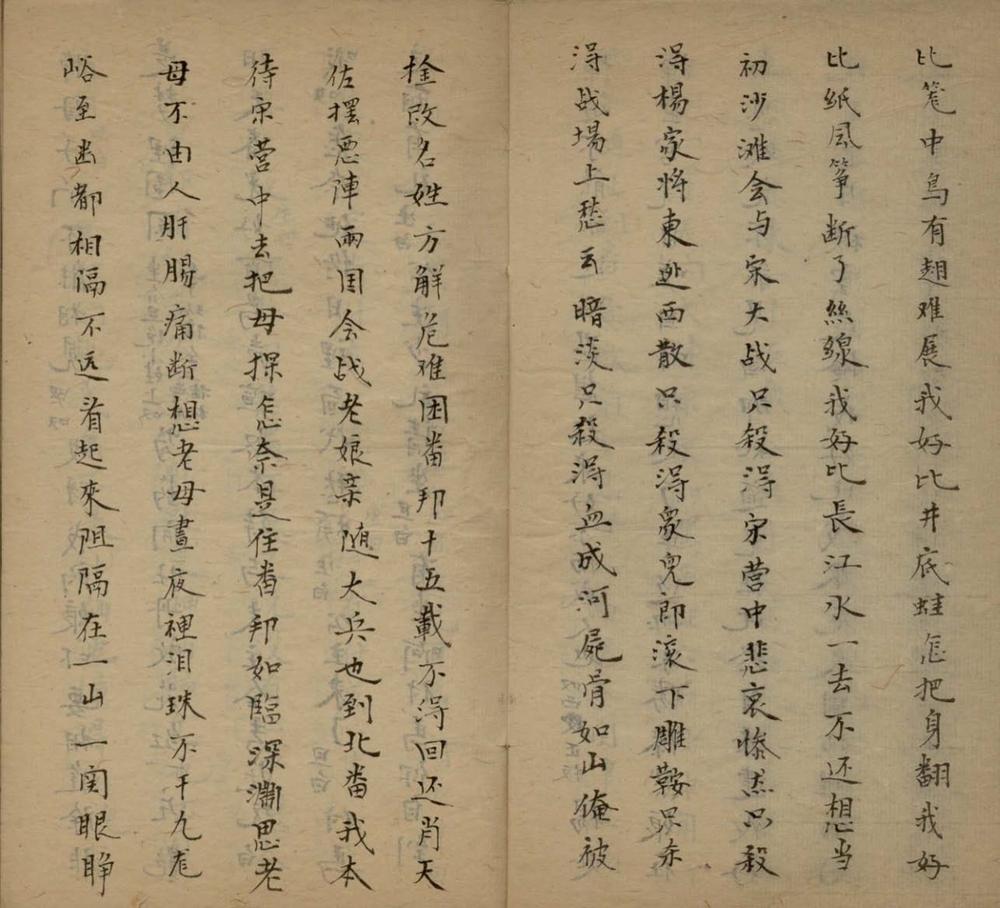 比笼中鸟有翅难展我好比井底蛙怎把身翻我好
比纸风筝断了丝線我好比長江水一去不还想当
初沙滩会与宋大战只殺淂宋营中悲哀惨杰只殺
淂楊家将東逃西散只殺淂衆兒郎滚下雕鞍只杀
淂战場上愁云暗淡只殺淂血成河屍骨如山俺被
擒改名姓方解危难困畨邦十五載不淂回还肖天
佐摆悪陣兩国会战老娘亲随大兵也到北畨我本
待宋营中去把母探怎奈是住畨邦如臨深淵思老
母不由人肝腸痛断想老母晝夜裡泪珠不干九龙
峪至幽都相隔不远看起來阻隔在一山一関眼睁